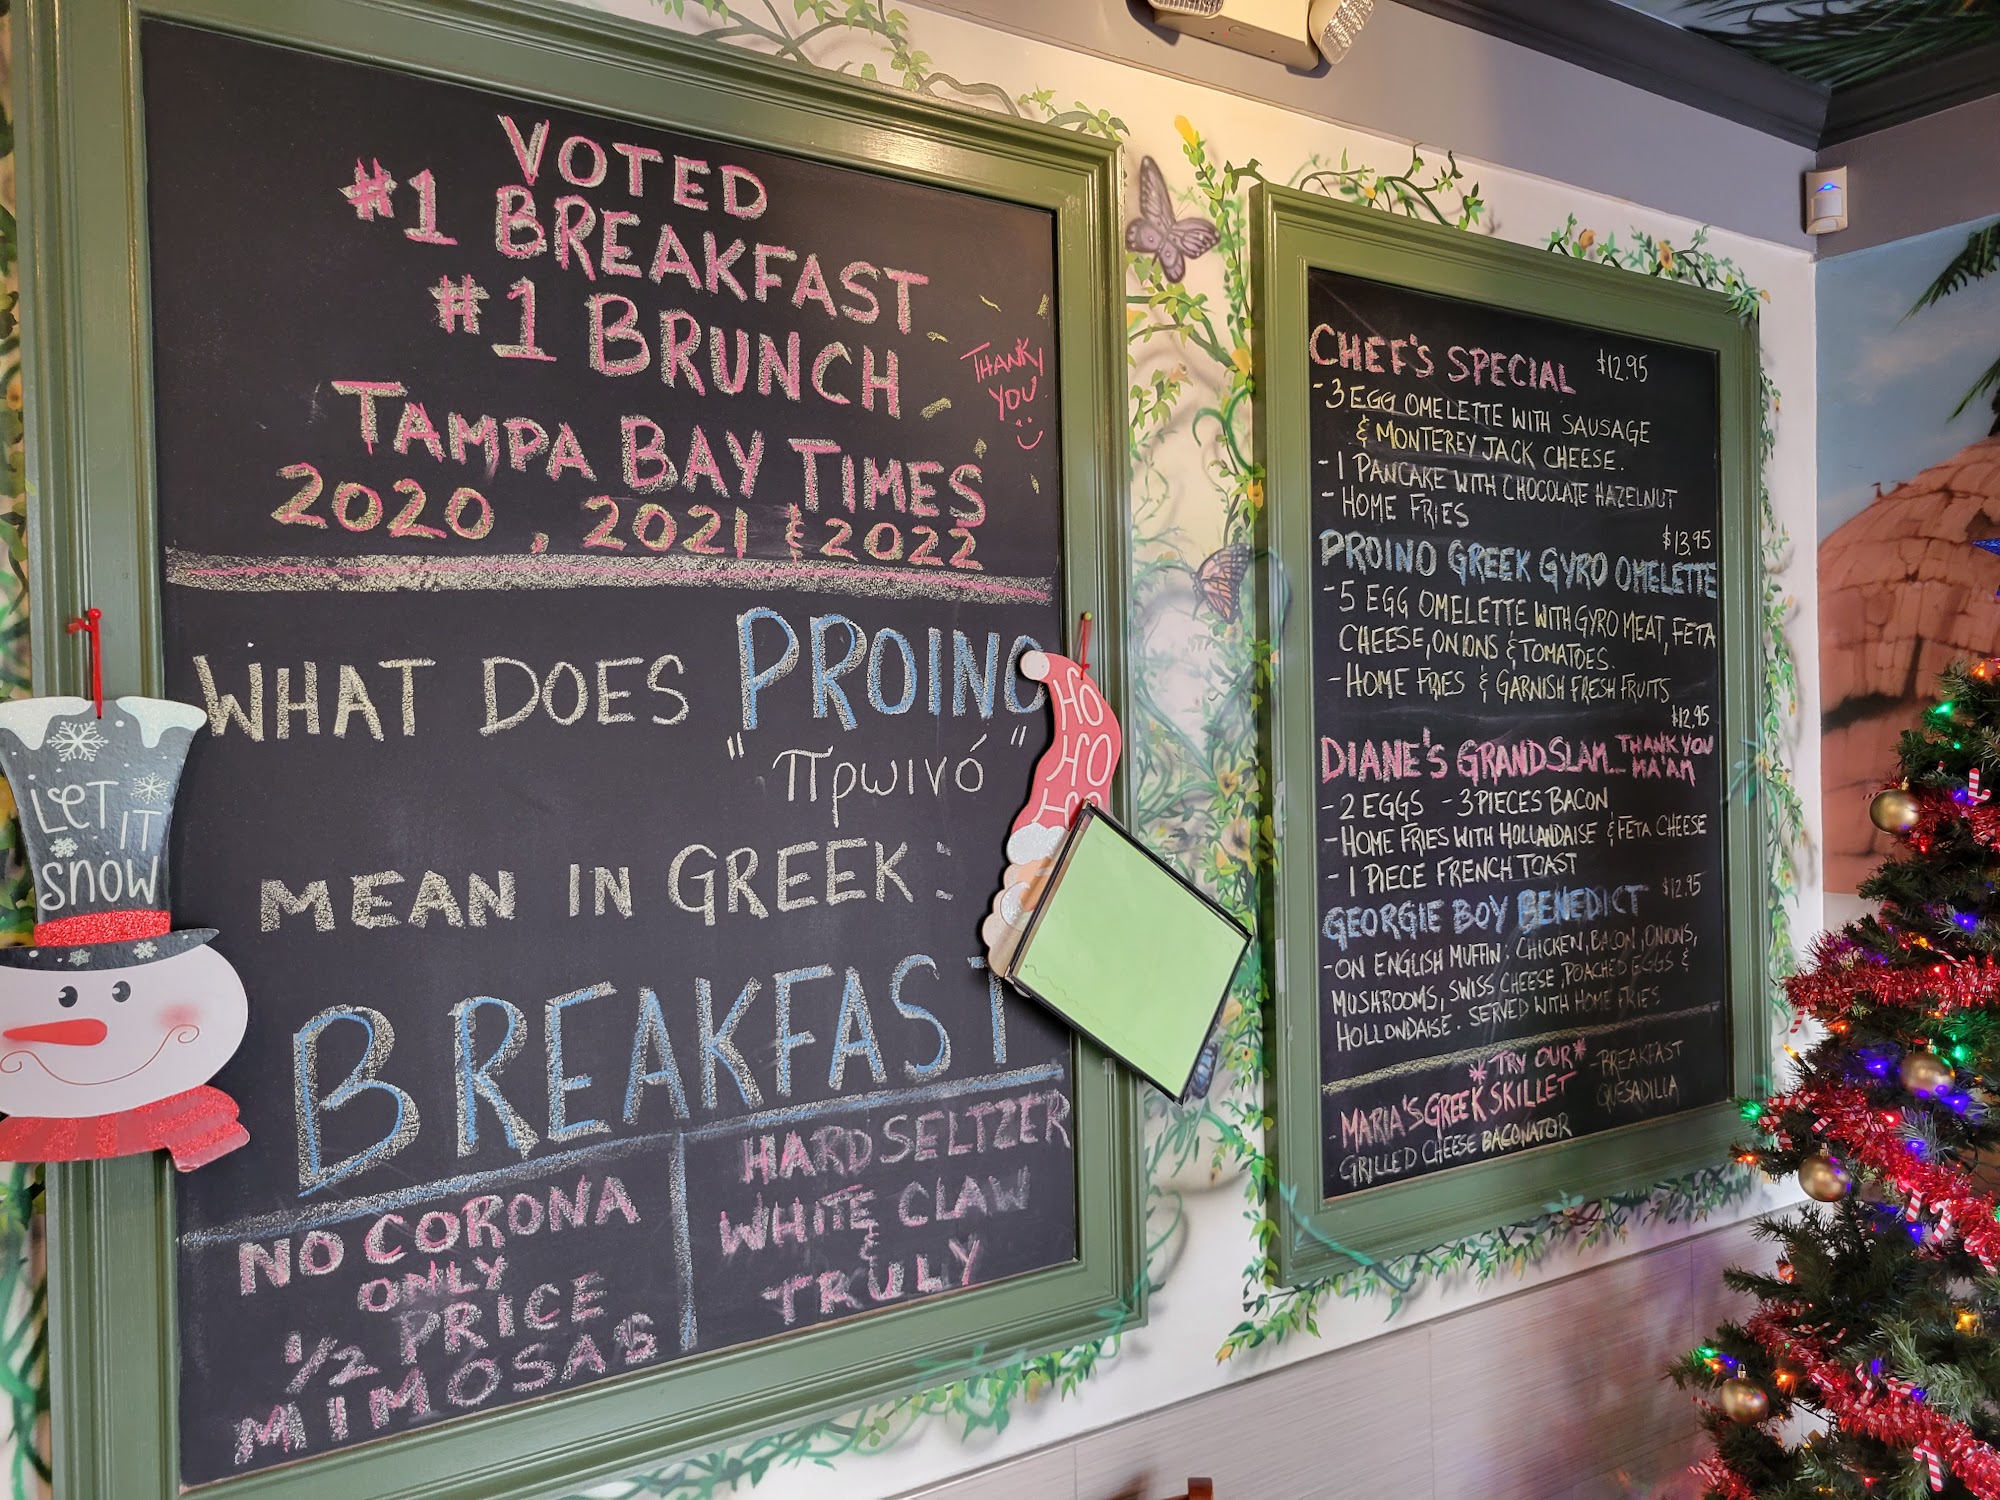 VOTED
#1 BREAKFAST
#1 BRUNCH
TAMPA BAY TIMES
2020, 2021 & 2022
THANK
YOU
WHAT DOES PROINO
"πρωινό"
MEAN IN GREEK:
BREAKFAST
NO CORONA
ONLY
1/2 PRICE
MIMOSAS
HARD SELTZER
WHITE CLAW
&
TRULY
LET
IT
SNOW
HO
HO
HO
CHEF'S SPECIAL $12.95
-3 EGG OMELETTE WITH SAUSAGE
& MONTEREY JACK CHEESE.
-1 PANCAKE WITH CHOCOLATE HAZELNUT
-HOME FRIES
$13.95
PROINO GREEK GYRO OMELETTE
-5 EGG OMELETTE WITH GYRO MEAT, FETA
CHEESE, ONIONS & TOMATOES.
-HOME FRIES & GARNISH FRESH FRUITS
$12.95
DIANE'S GRANDSLAM - THANK YOU
MA'AM
-2 EGGS -3 PIECES BACON
-HOME FRIES WITH HOLLANDAISE & FETA CHEESE
-1 PIECE FRENCH TOAST
GEORGIE BOY BENEDICT $12.95
-ON ENGLISH MUFFIN: CHICKEN, BACON, ONIONS,
MUSHROOMS, SWISS CHEESE, POACHED EGGS &
HOLLONDAISE. SERVED WITH HOME FRIES
*TRY OUR*
-MARIA'S GREEK SKILLET
-BREAKFAST
QUESADILLA
-GRILLED CHEESE BACONATOR